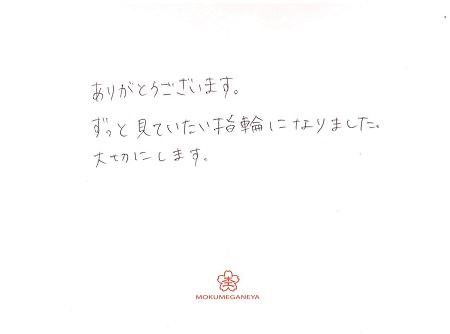 ありがとうございます。
ずっと見ていたい指輪になりました。
大切にします。
MOKUMEGANEYA